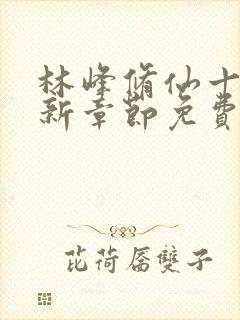 林峰脩仙十
新章節免費
芘荷居雙子